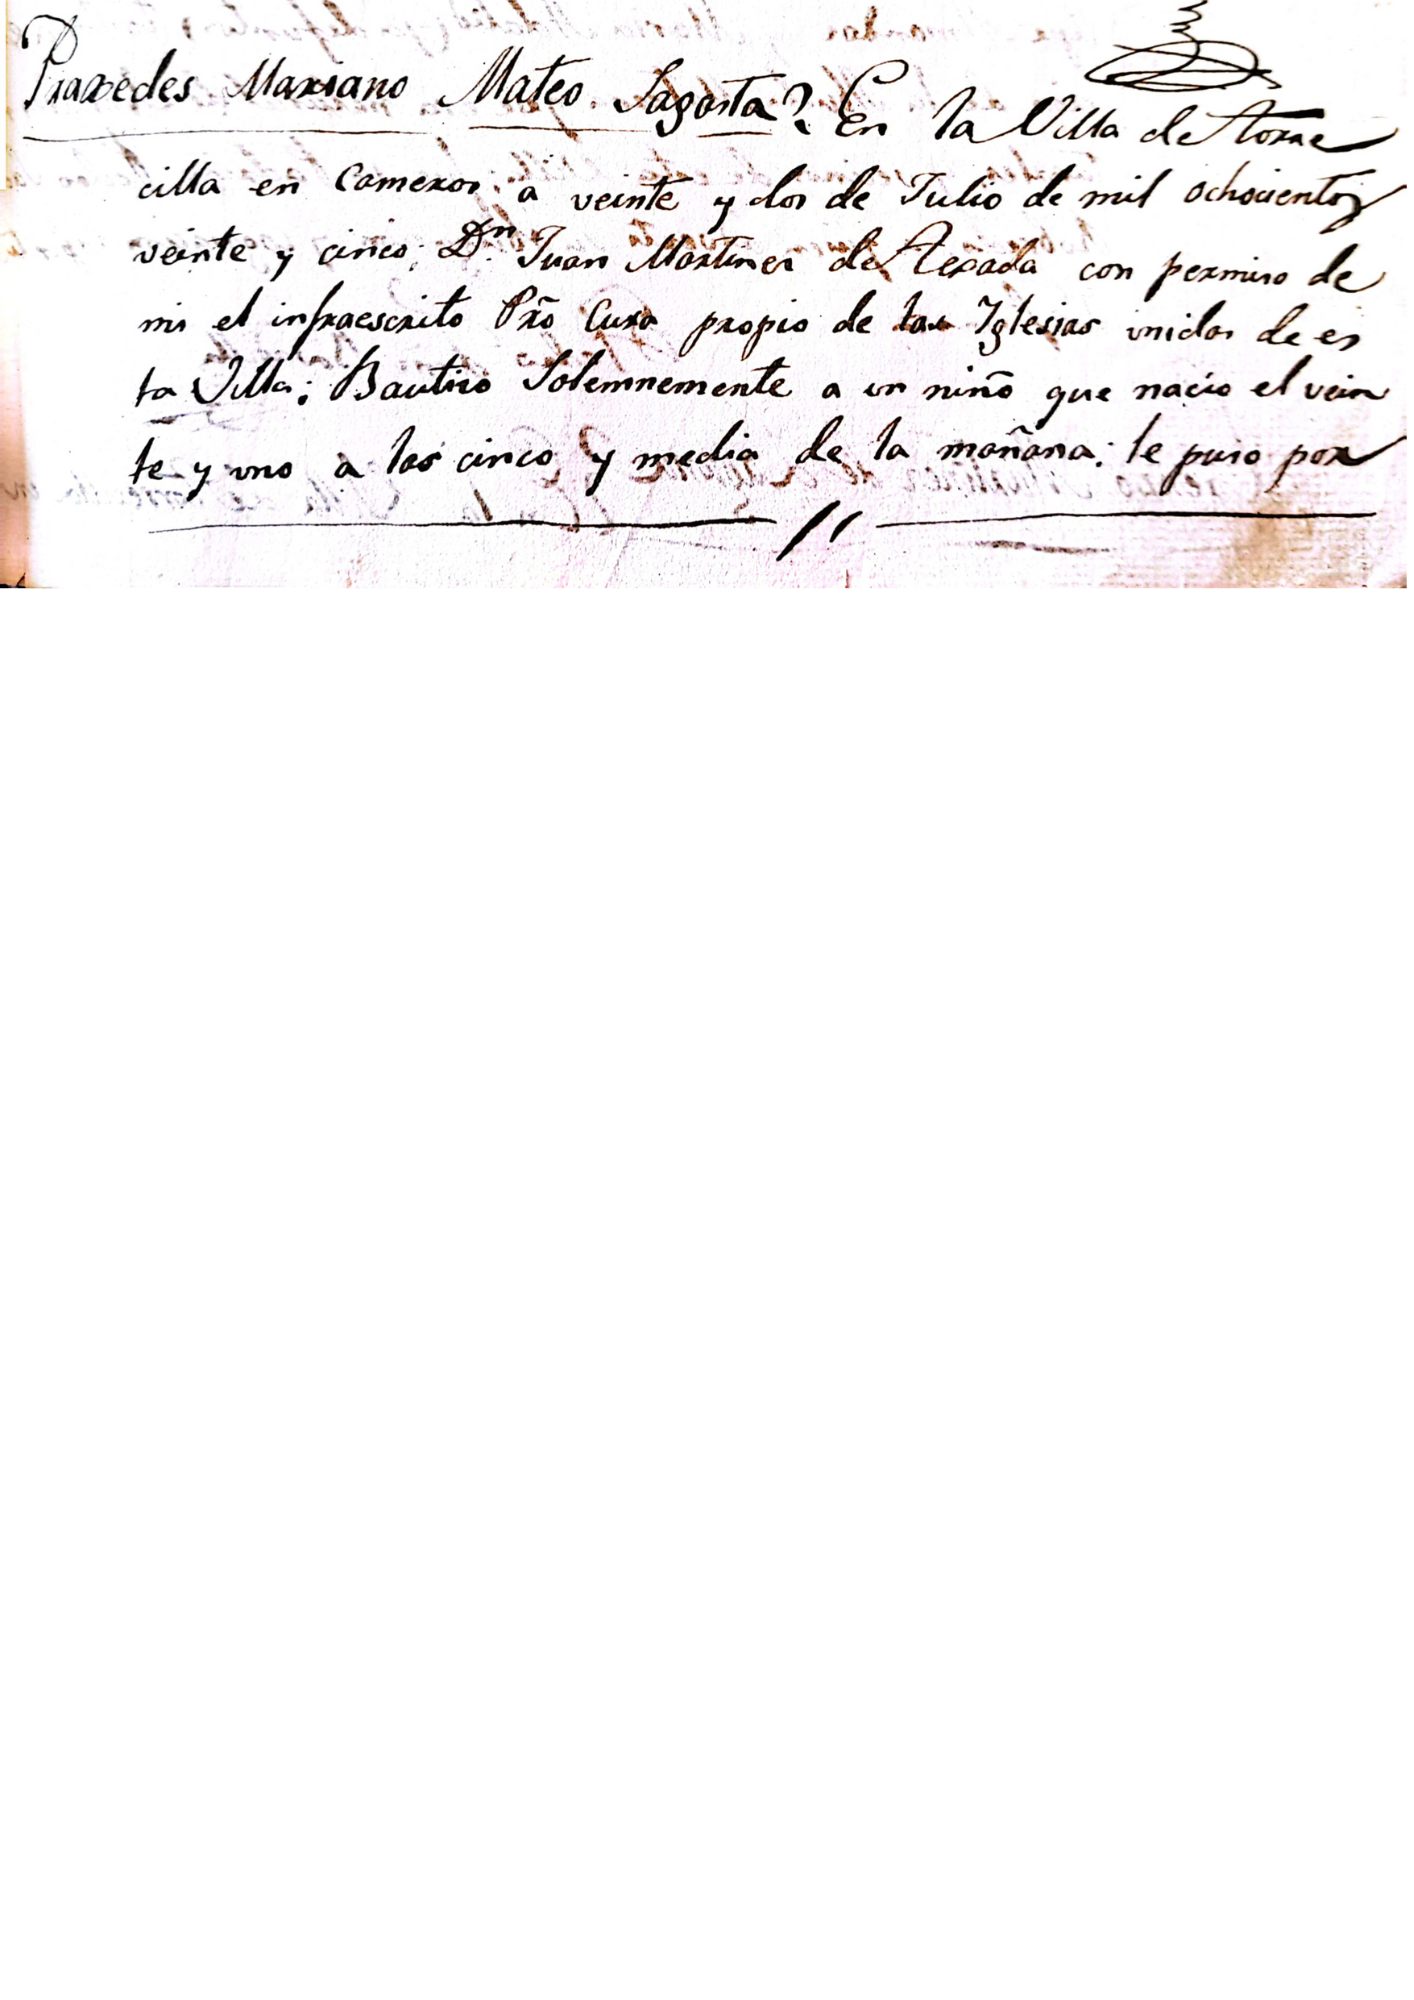 Praxedes Mariano Mateo Sagasta? En la Villa de Torre
cilla en Cameros, a veinte y dos de Julio de mil ochocientos
veinte y cinco; Dn. Juan Martinez de Texada con permiso de
mi el infraescrito Pro Cura propio de las Iglesias unidas de es
ta Villa; Bautizo Solemnemente a un niño que nacio el vein
te y uno a las cinco y media de la mañana; le puso por